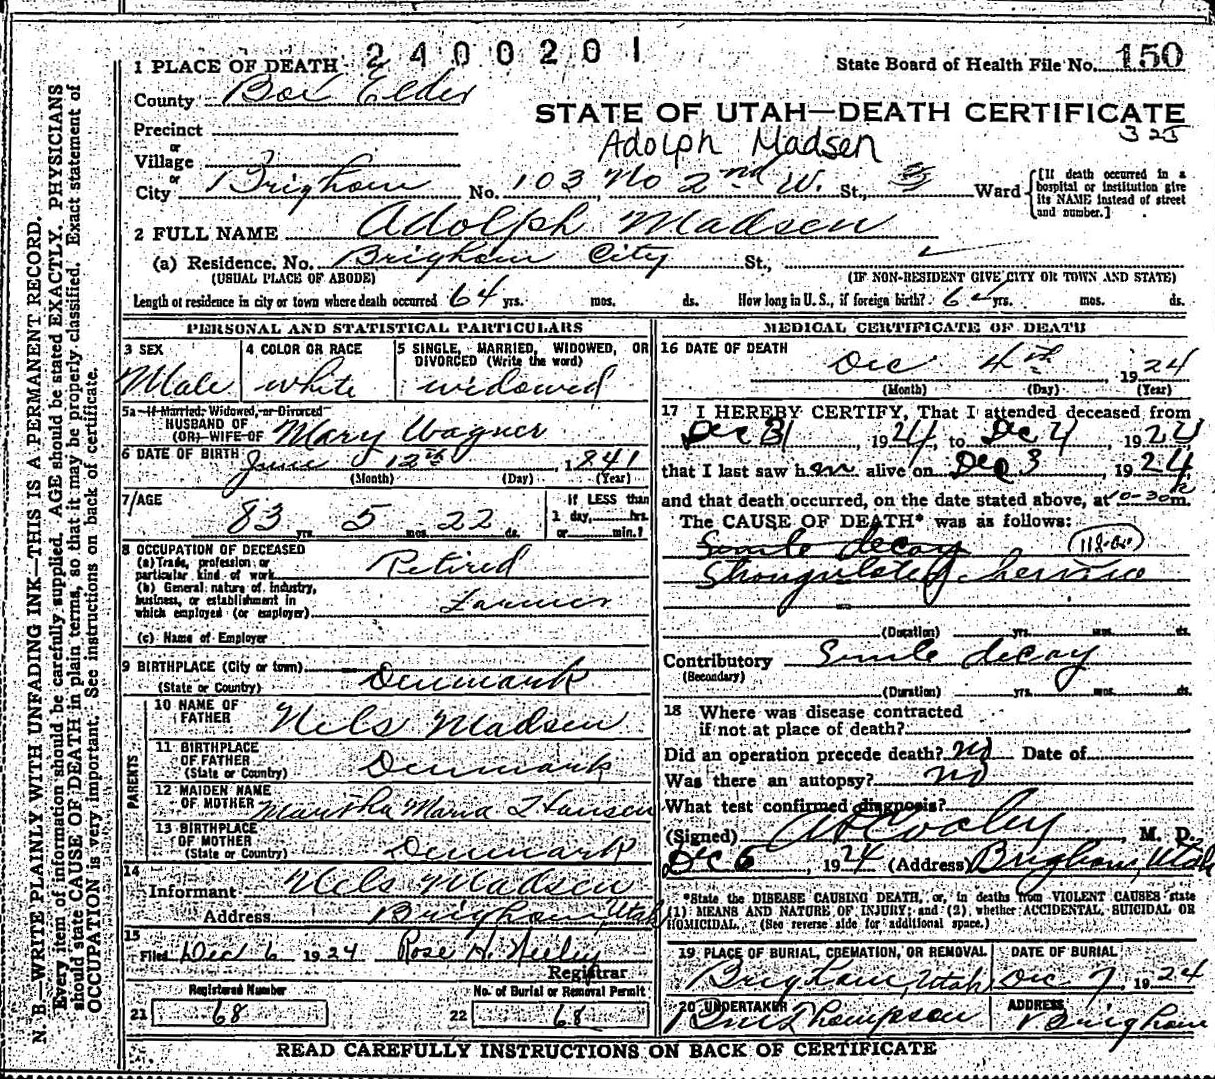 2400201
1 PLACE OF DEATH
State Board of Health File No. 150
County Box Elder
STATE OF UTAH—DEATH CERTIFICATE
325
Precinct
Adolph Madsen
or
Village
or
City Brigham No. 103 No 2nd W. St., 3 Ward
[If death occurred in a hospital or institution give its NAME instead of street and number.]
2 FULL NAME Adolph Madsen
(a) Residence. No. Brigham City St.,
(USUAL PLACE OF ABODE) (IF NON-RESIDENT GIVE CITY OR TOWN AND STATE)
Length of residence in city or town where death occurred 64 yrs. mos. ds. How long in U.S., if foreign birth? yrs. mos. ds.
PERSONAL AND STATISTICAL PARTICULARS
3 SEX 4 COLOR OR RACE 5 SINGLE, MARRIED, WIDOWED, OR
DIVORCED (Write the word)
Male white widowed
5a If Married, Widowed, or Divorced
HUSBAND OF
(OR) WIFE OF Mary Wagner
6 DATE OF BIRTH June 12th, 1841
(Month) (Day) (Year)
7 AGE If LESS than
1 day, hrs.
83 yrs. 5 mos. 22 ds. or min.?
8 OCCUPATION OF DECEASED
(a) Trade, profession or
particular kind of work Retired
(b) General nature of industry,
business, or establishment in
which employed (or employer) Farmer
(c) Name of Employer
9 BIRTHPLACE (City or town)
(State or Country) Denmark
PARENTS
10 NAME OF
FATHER Nels Madsen
11 BIRTHPLACE
OF FATHER
(State or Country) Denmark
12 MAIDEN NAME
OF MOTHER Martha Maria Hansen
13 BIRTHPLACE
OF MOTHER
(State or Country) Denmark
14
Informant Nels Madsen
Address Brigham, Utah
15
Filed Dec 6 1924 Rose H. Neeley
Registrar
Registered Number No. of Burial or Removal Permit
21 68 22 68
MEDICAL CERTIFICATE OF DEATH
16 DATE OF DEATH
Dec 4th, 1924
(Month) (Day) (Year)
17 I HEREBY CERTIFY, That I attended deceased from
Dec 1924, to Dec 4, 1924
that I last saw him alive on Dec 3 1924
and that death occurred, on the date stated above, at 10-30 m.
The CAUSE OF DEATH* was as follows:
Senile decay
Strangulated hernia
(Duration) yrs. mos. ds.
Contributory Senile decay
(Secondary)
(Duration) yrs. mos. ds.
18 Where was disease contracted
if not at place of death?
Did an operation precede death? no Date of
Was there an autopsy? no
What test confirmed diagnosis?
(Signed) Cooley, M. D.
Dec 6, 1924 (Address) Brigham, Utah
*State the DISEASE CAUSING DEATH, or, in deaths from VIOLENT CAUSES state
(1) MEANS AND NATURE OF INJURY; and (2) whether ACCIDENTAL, SUICIDAL OR
HOMICIDAL. (See reverse side for additional space.)
19 PLACE OF BURIAL, CREMATION, OR REMOVAL DATE OF BURIAL
Brigham, Utah Dec 7, 1924
20 UNDERTAKER ADDRESS
Thompson Brigham
READ CAREFULLY INSTRUCTIONS ON BACK OF CERTIFICATE
N. B.—WRITE PLAINLY WITH UNFADING INK—THIS IS A PERMANENT RECORD.
Every item of information should be carefully supplied. AGE should be stated EXACTLY. PHYSICIANS
should state CAUSE OF DEATH in plain terms, so that it may be properly classified. Exact statement of
OCCUPATION is very important. See instructions on back of certificate.